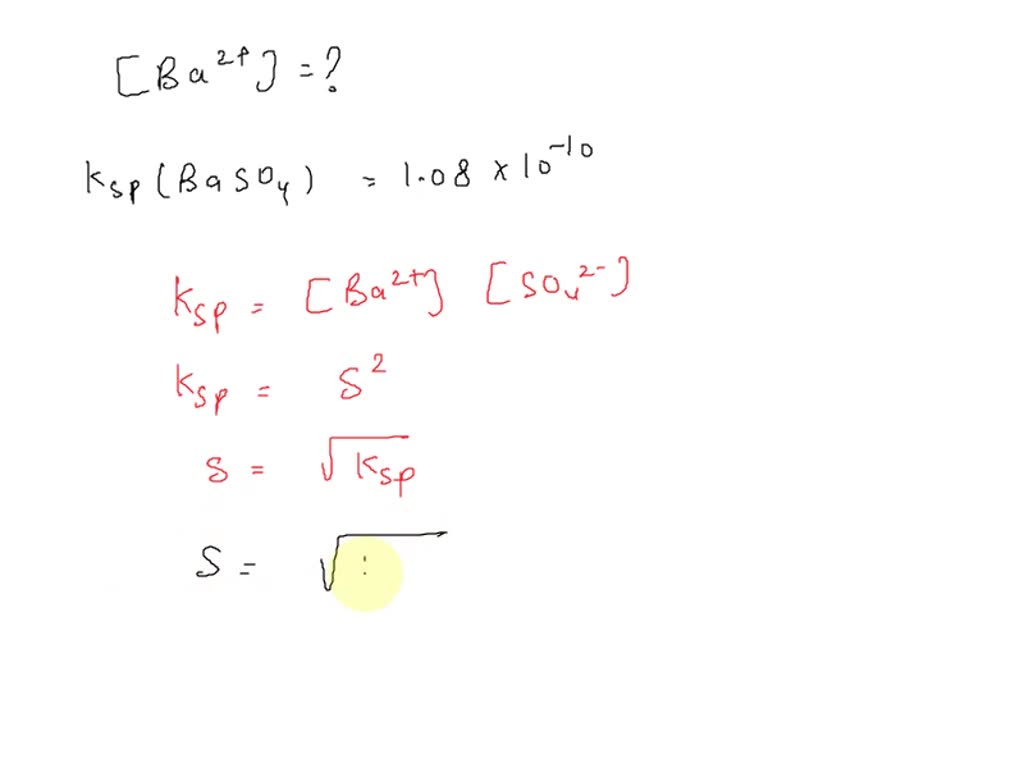 [Ba²⁺] = ?
Ksp (BaSO₄) = 1.08 × 10⁻¹⁰
Ksp = [Ba²⁺] [SO₄²⁻]
Ksp = S²
S = √Ksp
S = √